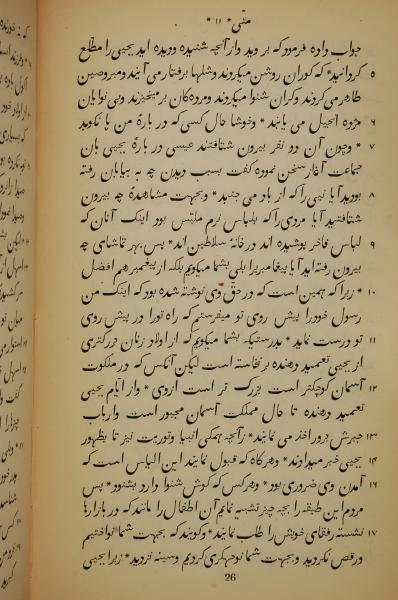 متی * ۱۱ *
جواب داده فرمود که بروید و از آنچه شنیده و دیده اید یحیی را مطلع
۵ کردانید* که کوران روشن میکردند و شلها برفتار می آیند و مبروصین
طاهر می کردند و کران شنوا میکردند و مرده کان برمیخیزند و بی نوایان
۶ مژده انجیل می یابند* و خوشا حال کسی که در بارهٔ من با نکوید
۷ * و چون آن دو نفر بیرون شتافتند عیسی در بارهٔ یحیی بآن
جماعت آغاز سخن نموده کفت بسبب دیدن چه به بیابان رفته
۸ بودید آیا نیی را که از باد می جنبد* و بجهت مشاهدهٔ چه بیرون
شتافتید آیا مردی را که بلباس نرم ملبّس بود اینک آنان که
۹ لباس فاخر پوشیده اند در خانهٔ سلاطین اند* پس بهر تماشای چه
بیرون رفته اید آیا پیغامبر را بلی بشما میکویم بلکه از پیغمبر هم افضل
۱۰ * زیرا که همین است که در حقّ وی نوشته شده بود که اینک من
رسول خود را پیش روی تو میفرستم که راه تو را در پیش روی
۱۱ تو درست نماید* بدرستیکه بشما میکویم که از اولاد زنان بزرکتری
از یحیی تعمید دهنده برنخاسته است لیکن آنکس که در ملکوت
۱۲ آسمان کوچکتر است بزرک تر است از وی* و از ایّام یحیی
تعمید دهنده تا حال مملکت آسمان مجبور است و ارباب
۱۳ جبرش بزور اخذ می نمایند* زآنچه همکی انبیا و توریت نیز تا بظهور
۱۴ یحیی خبر میدادند* و هرکاه که قبول نمایند این الیاس است که
۱۶ آمدن وی ضروری بود* و هر کس که کوش شنوا دارد بشنود* پس
مردم این طبقه را بچه چیز تشبیه نمایم آن اطفال را مانند که در بازارها
۱۷ نشسته رفقای خویش را طلب نمایند* و کویند که بجهت شما نواختیم
و رقص نکردید و بجهت شما نوحه کری کردیم و سینه نزدید* زیرا یحیی
26